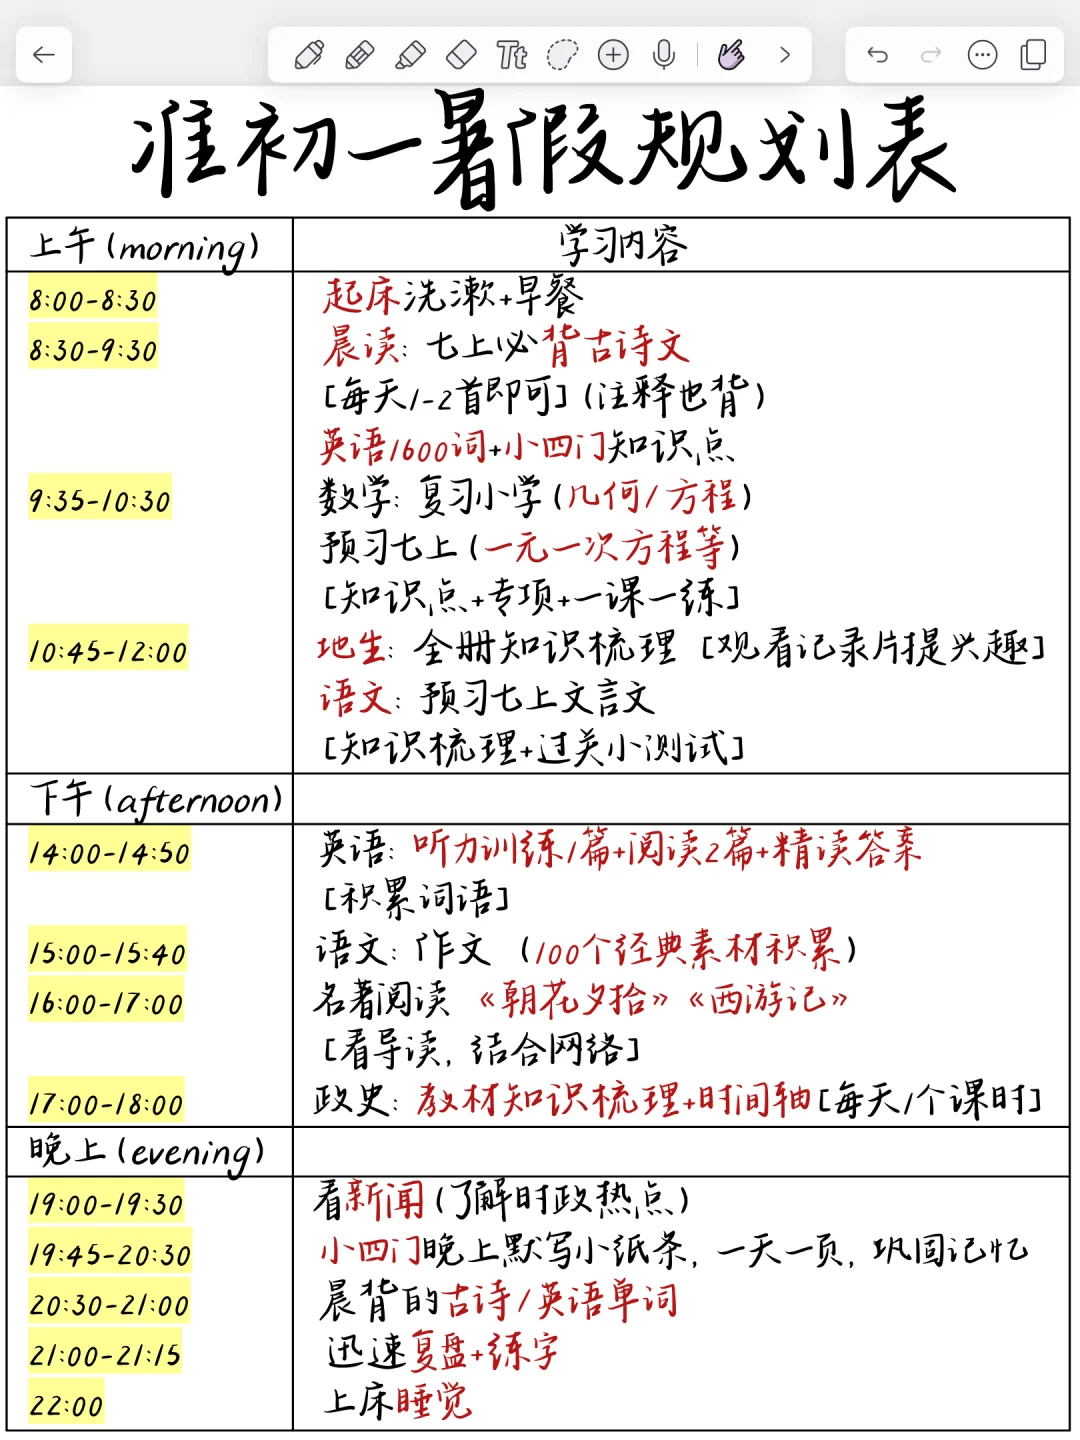 Tt
准初一暑假规划表
上午(morning) 学习内容
8:00-8:30 起床洗漱+早餐
8:30-9:30 晨读: 七上必背古诗文
[每天1-2首即可](注释也背)
英语1600词+小四门知识点
9:35-10:30 数学: 复习小学(几何/方程)
预习七上(一元一次方程等)
[知识点+专项+一课一练]
10:45-12:00 地生: 全册知识梳理 [观看记录片提兴趣]
语文: 预习七上文言文
[知识梳理+过关小测试]
下午(afternoon)
14:00-14:50 英语: 听力训练1篇+阅读2篇+精读答案
[积累词语]
15:00-15:40 语文: 作文 (100个经典素材积累)
16:00-17:00 名著阅读 《朝花夕拾》《西游记》
[看导读, 结合网络]
17:00-18:00 政史: 教材知识梳理+时间轴[每天1个课时]
晚上(evening)
19:00-19:30 看新闻(了解时政热点)
19:45-20:30 小四门晚上默写小纸条, 一天一页, 巩固记忆
20:30-21:00 晨背的古诗/英语单词
21:00-21:15 迅速复盘+练字
22:00 上床睡觉